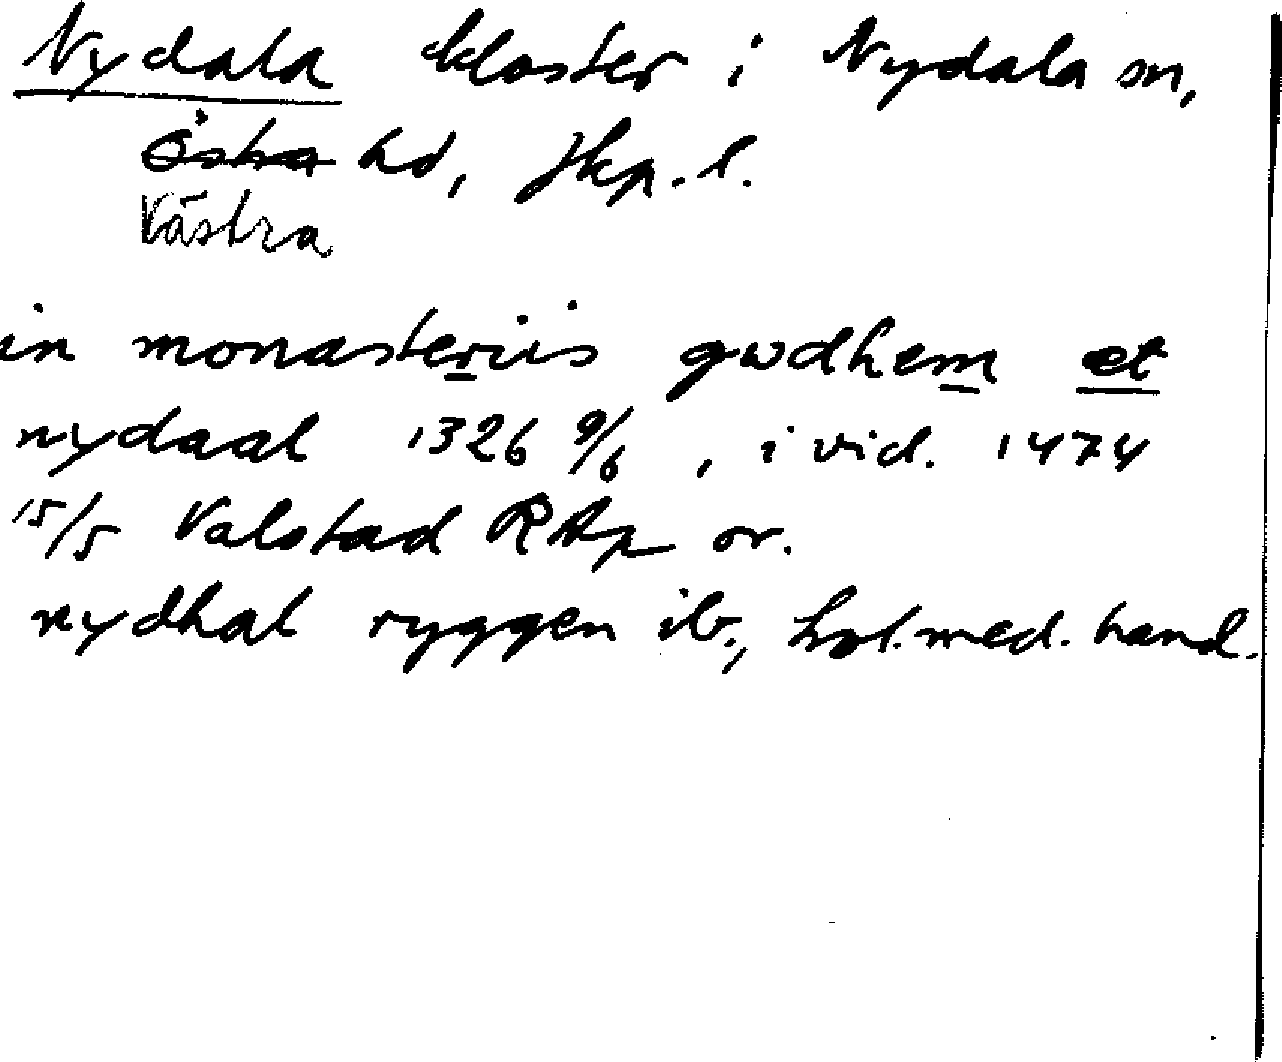 Nydala kloster i Nydala sn,
Östra hd, Jkp. l.
Västra
in monasteriis gwdhem et
nydaal 1326 9/6, i vid. 1474
15/5 Valstad RAp or.
nydhal ryggen ib., hol. med. hand.